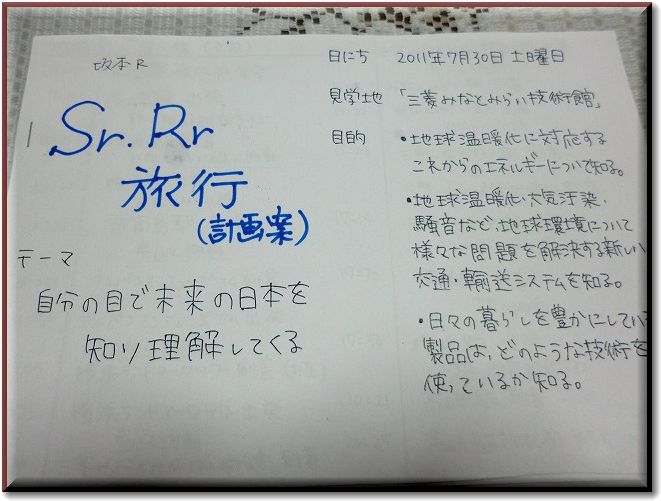 坂本R
Sr.Rr
旅行
(計画案)
テーマ
自分の目で未来の日本を
知り理解してくる
日にち 2011年7月30日 土曜日
見学地 「三菱みなとみらい技術館」
目的 ・地球温暖化に対応する
これからのエネルギーについて知る。
・地球温暖化・大気汚染・
騒音など、地球環境について
様々な問題を解決する新しい
交通・輸送システムを知る。
・日々の暮らしを豊かにしている
製品は、どのような技術を
使っているか知る。